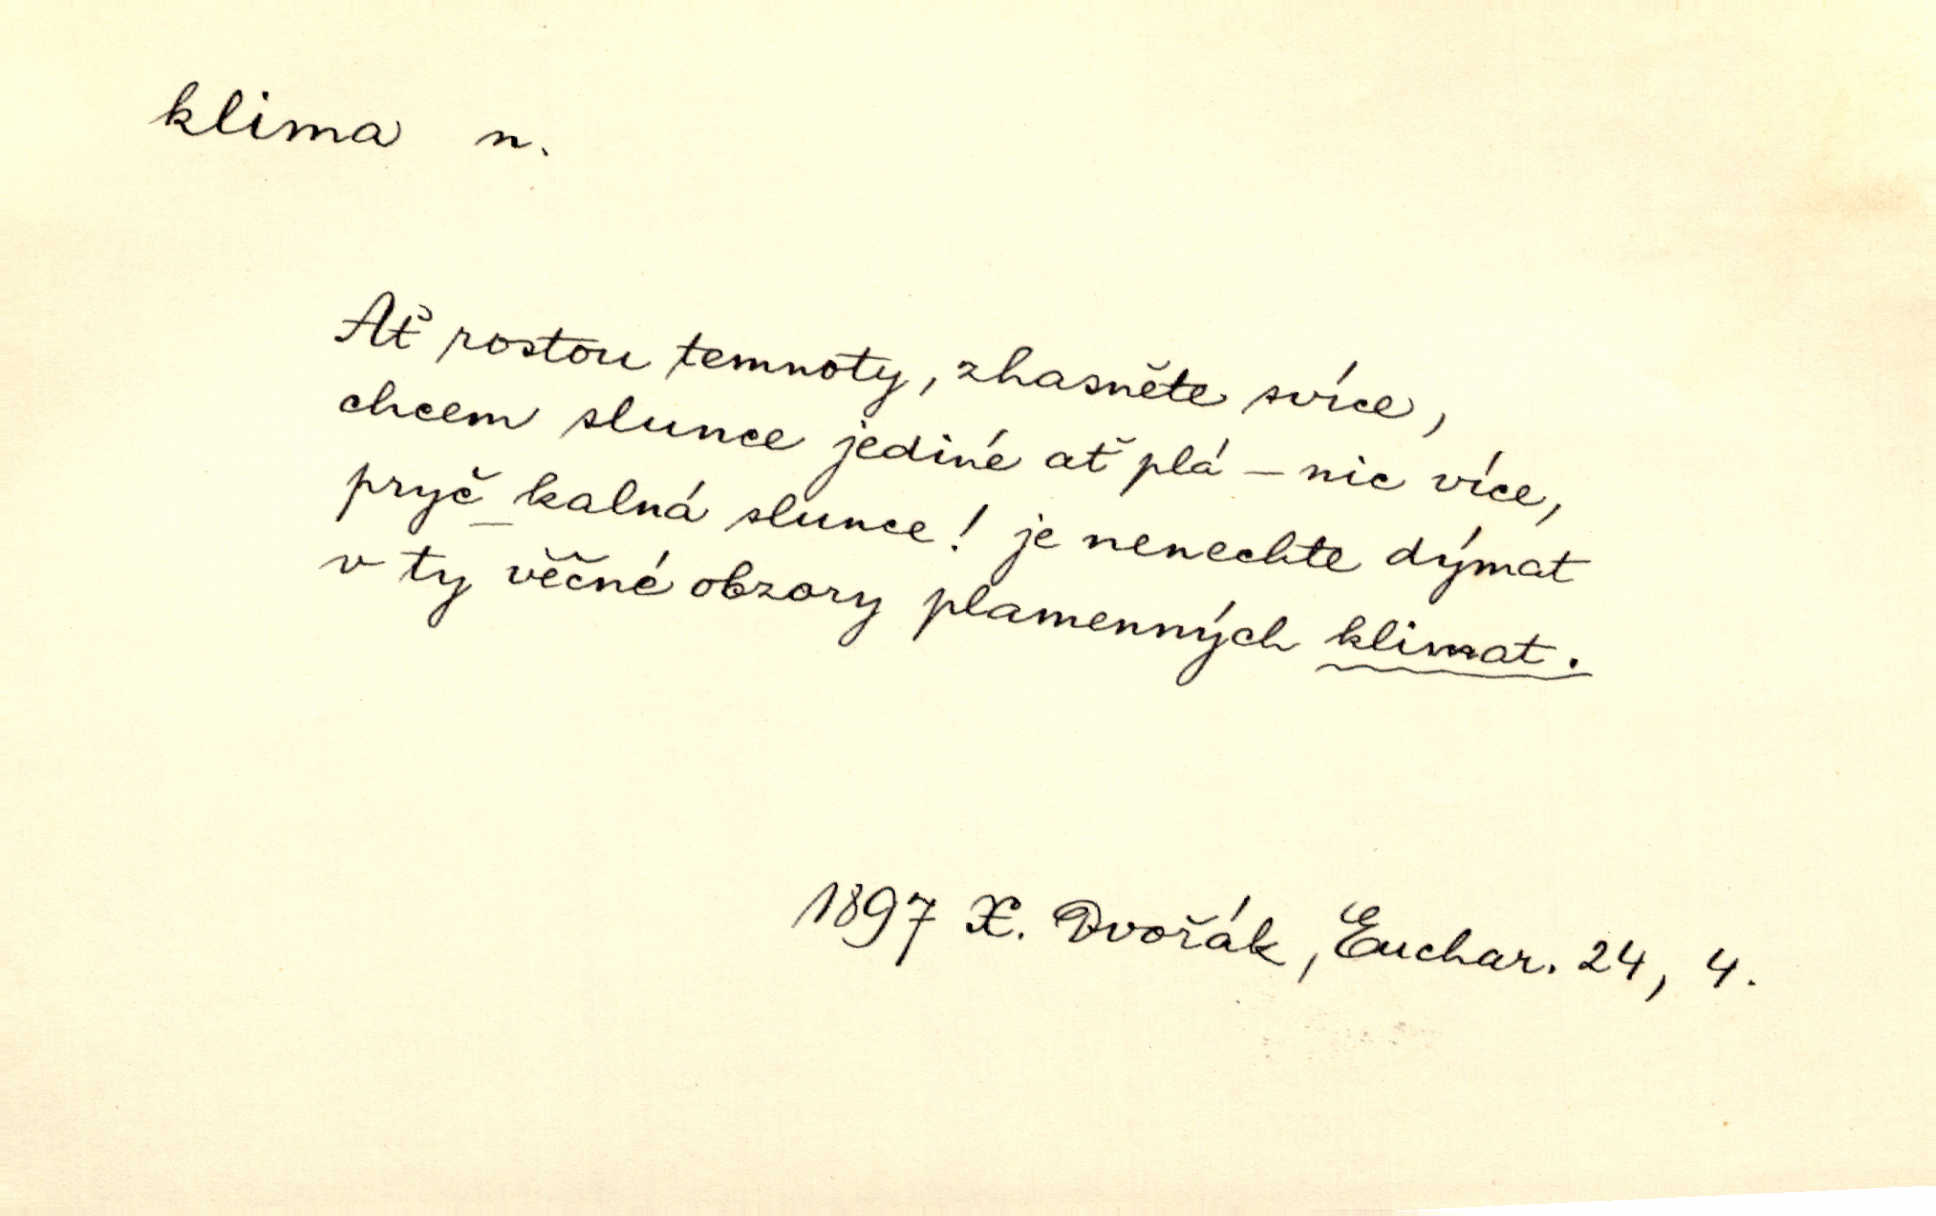 klima n.
Ať rostou temnoty, zhasněte svíce,
chcem slunce jediné ať plá – nic více,
pryč _ kalná slunce! je nenechte dýmat
v ty věčné obzory plamenných klimat.
1897 X. Dvořák, Euchar. 24, 4.